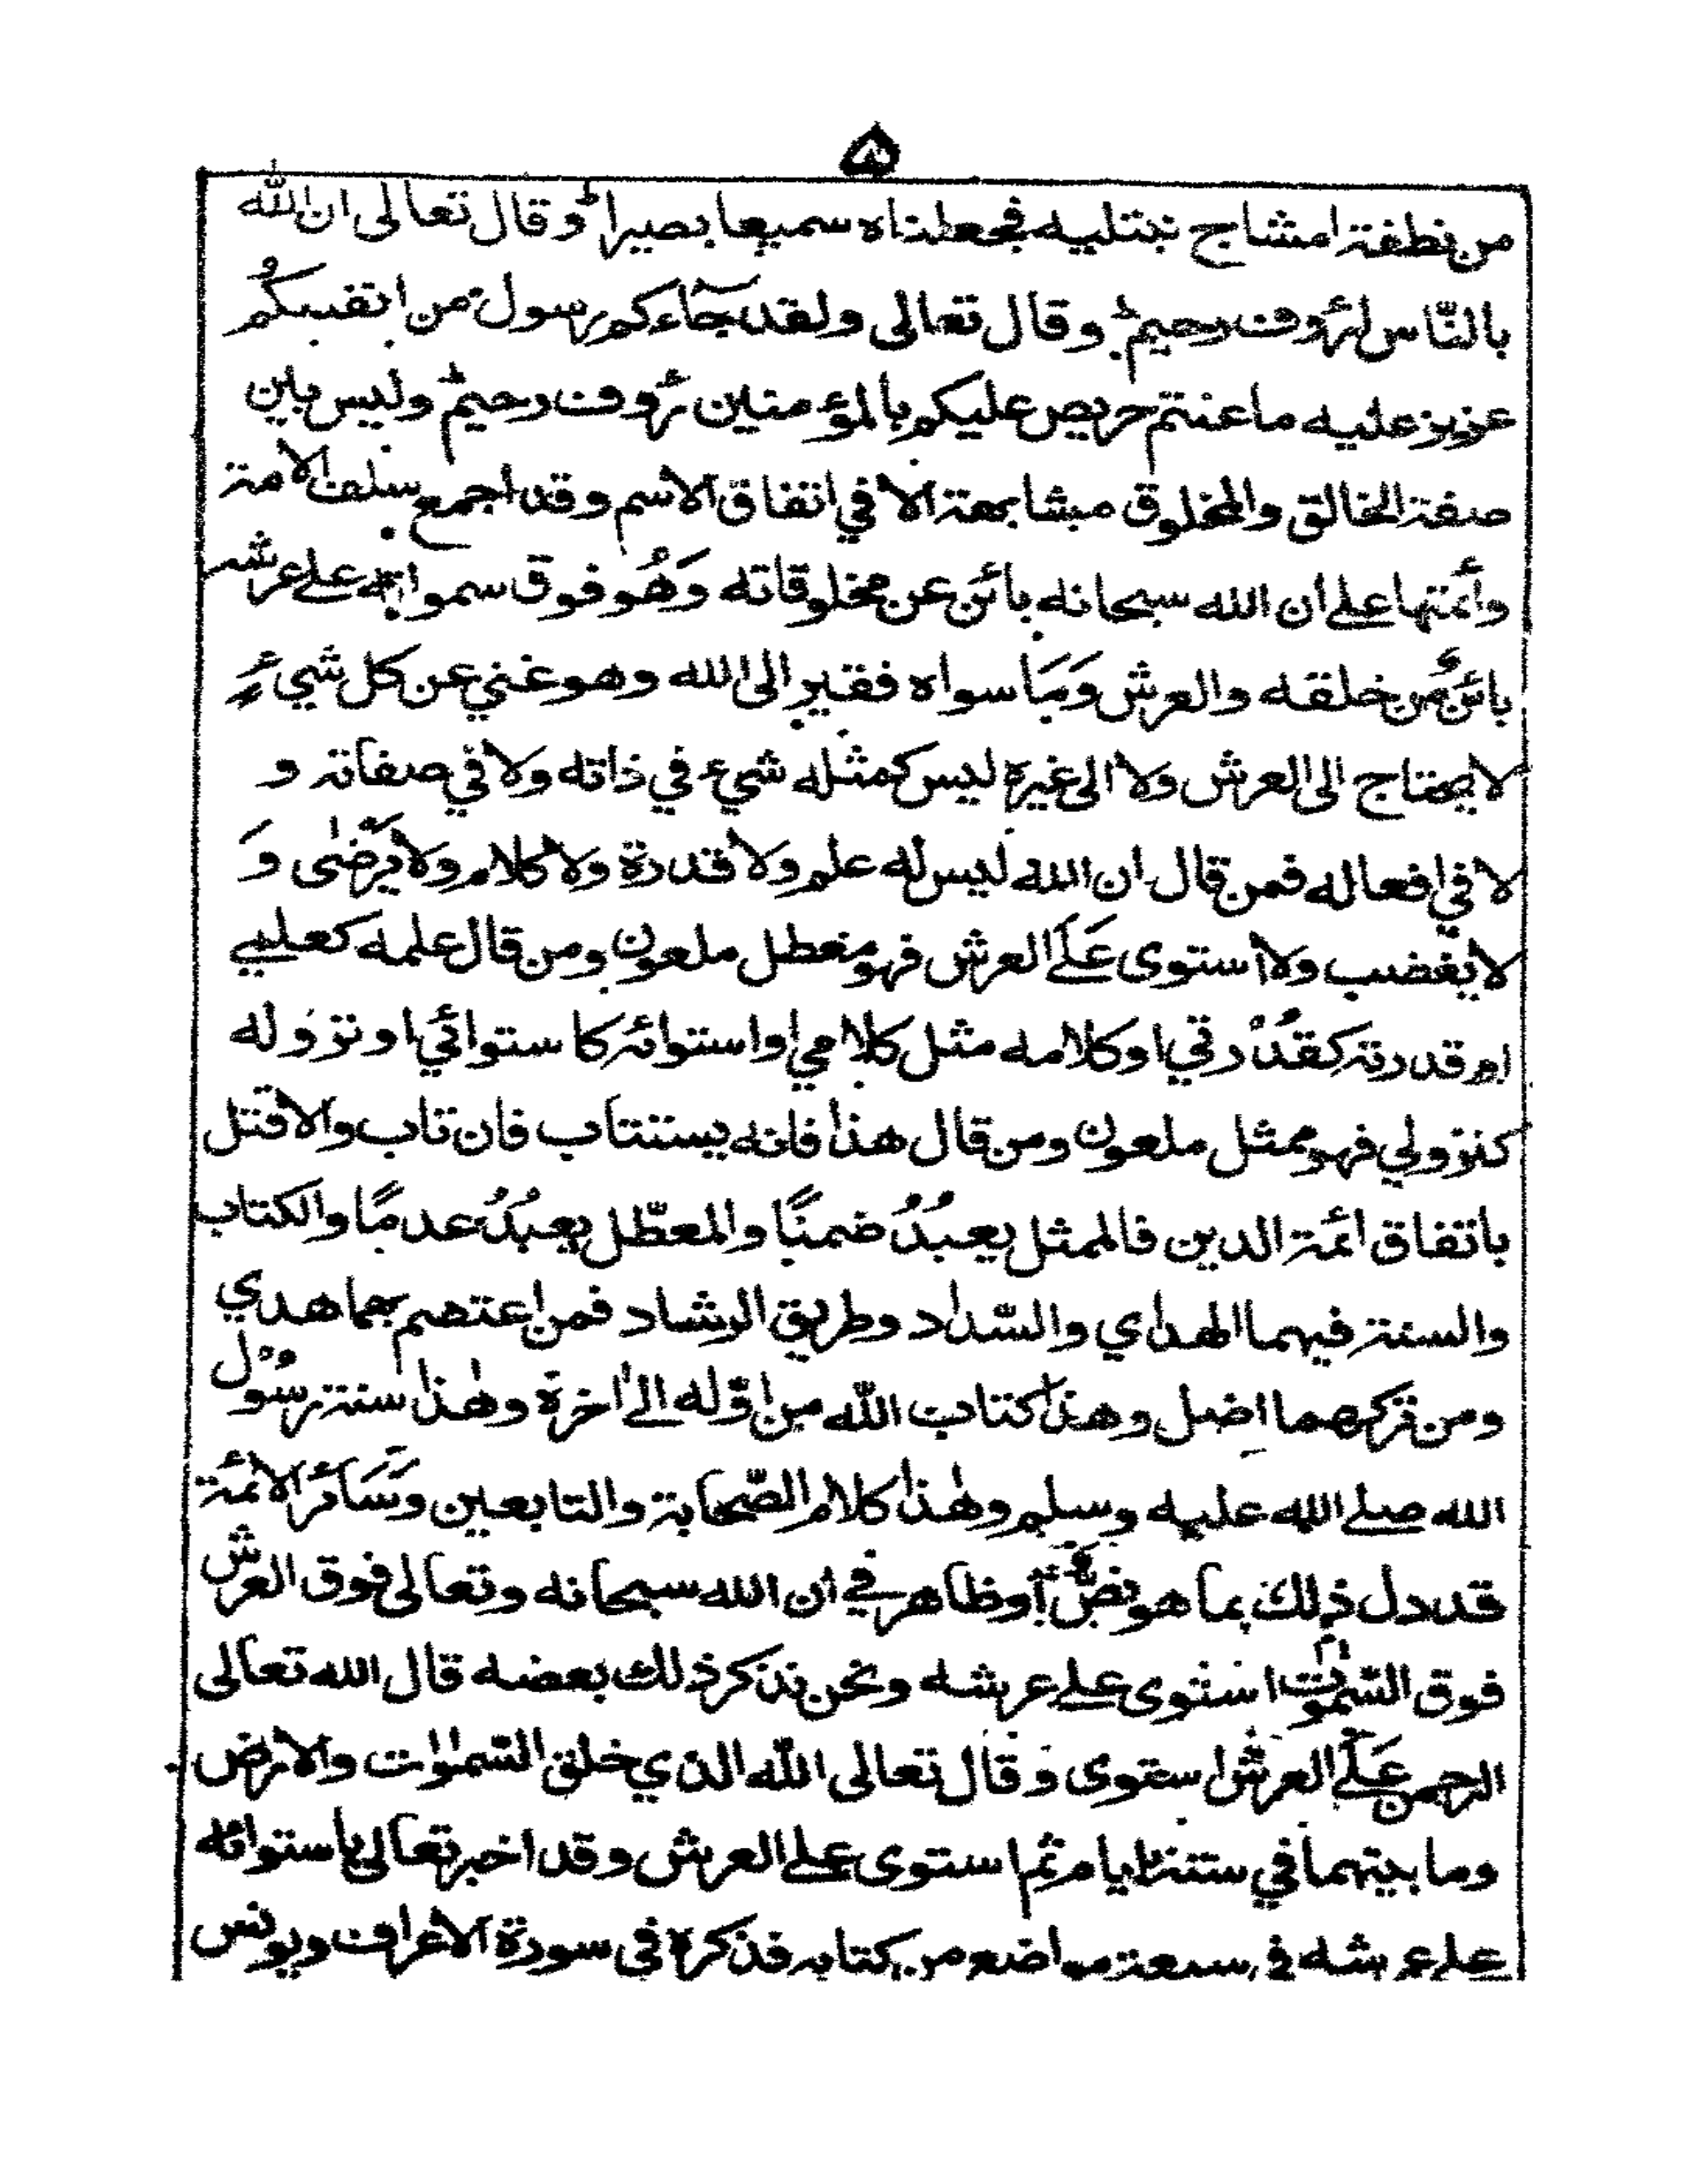 ۵
من نطفة امشاج نبتليه فجعلناه سميعا بصيرا ط وقال تعالى ان الله
بالنّاس لرؤف رحيم ط وقال تعالى ولقد جَآءكم رسول من انفسكُم
عزيز عليه ما عنتم حريص عليكم بالمؤمنين رؤف رحيم ط وليس بين
صفة الخالق والمخلوق مشابهة الا في اتفاق الاسم وقد اجمع سلف الامة
وأئمتها على ان الله سبحانه بائن عن مخلوقاته وَهُو فوق سمواته على عرشه
بائن من خلقه والعرش وَمَا سواه فقير الى الله وهو غني عن كل شيء
لا يحتاج الى العرش ولا الى غيره ليس كمثله شيء في ذاته ولا في صفاته و
لا في افعاله فمن قال ان الله ليس له علم ولا قدرة ولا كلام ولا يَرْضٰى وَ
لا يغضب ولا استوى عَلَى العرش فهو معطل ملعون ومن قال علمه كعلمي
او قدرته كقُدْرتي او كلامه مثل كلامي او استوائه كاستوائي او نزوله
كنزولي فهو ممثل ملعون ومن قال هذا فانه يستتاب فان تاب والا قتل
باتفاق ائمة الدين فالممثل يعبُدُ ضمنًا والمعطّل يعبُدُ عدمًا والكتاب
والسنة فيهما الهداي والسّداد وطريق الرشاد فمن اعتصم بهما هدي
ومن تركهما اضل وهذا كتاب الله من اوّله الى اخره وهٰذا سنة رسُوْل
الله صلى الله عليه وسلم وهٰذا كلام الصّحابة والتابعين وَسَائر الائمة
قد دل ذلك بما هو نصٌّ أو ظاهر في ان الله سبحانه وتعالى فوق العرش
فوق السّمٰوٰت استوى على عرشه ونحن نذكر ذلك بعضه قال الله تعالى
الرحمن عَلَى العرش استوى وَقال تعالى الله الذي خلق السّمٰوٰت والارض
وما بينهما في ستة ايام ثم استوى على العرش وقد اخبر تعالى باستوائه
على عرشه في سبعة مواضع من كتابه فذكره في سورة الاعراف ويونس